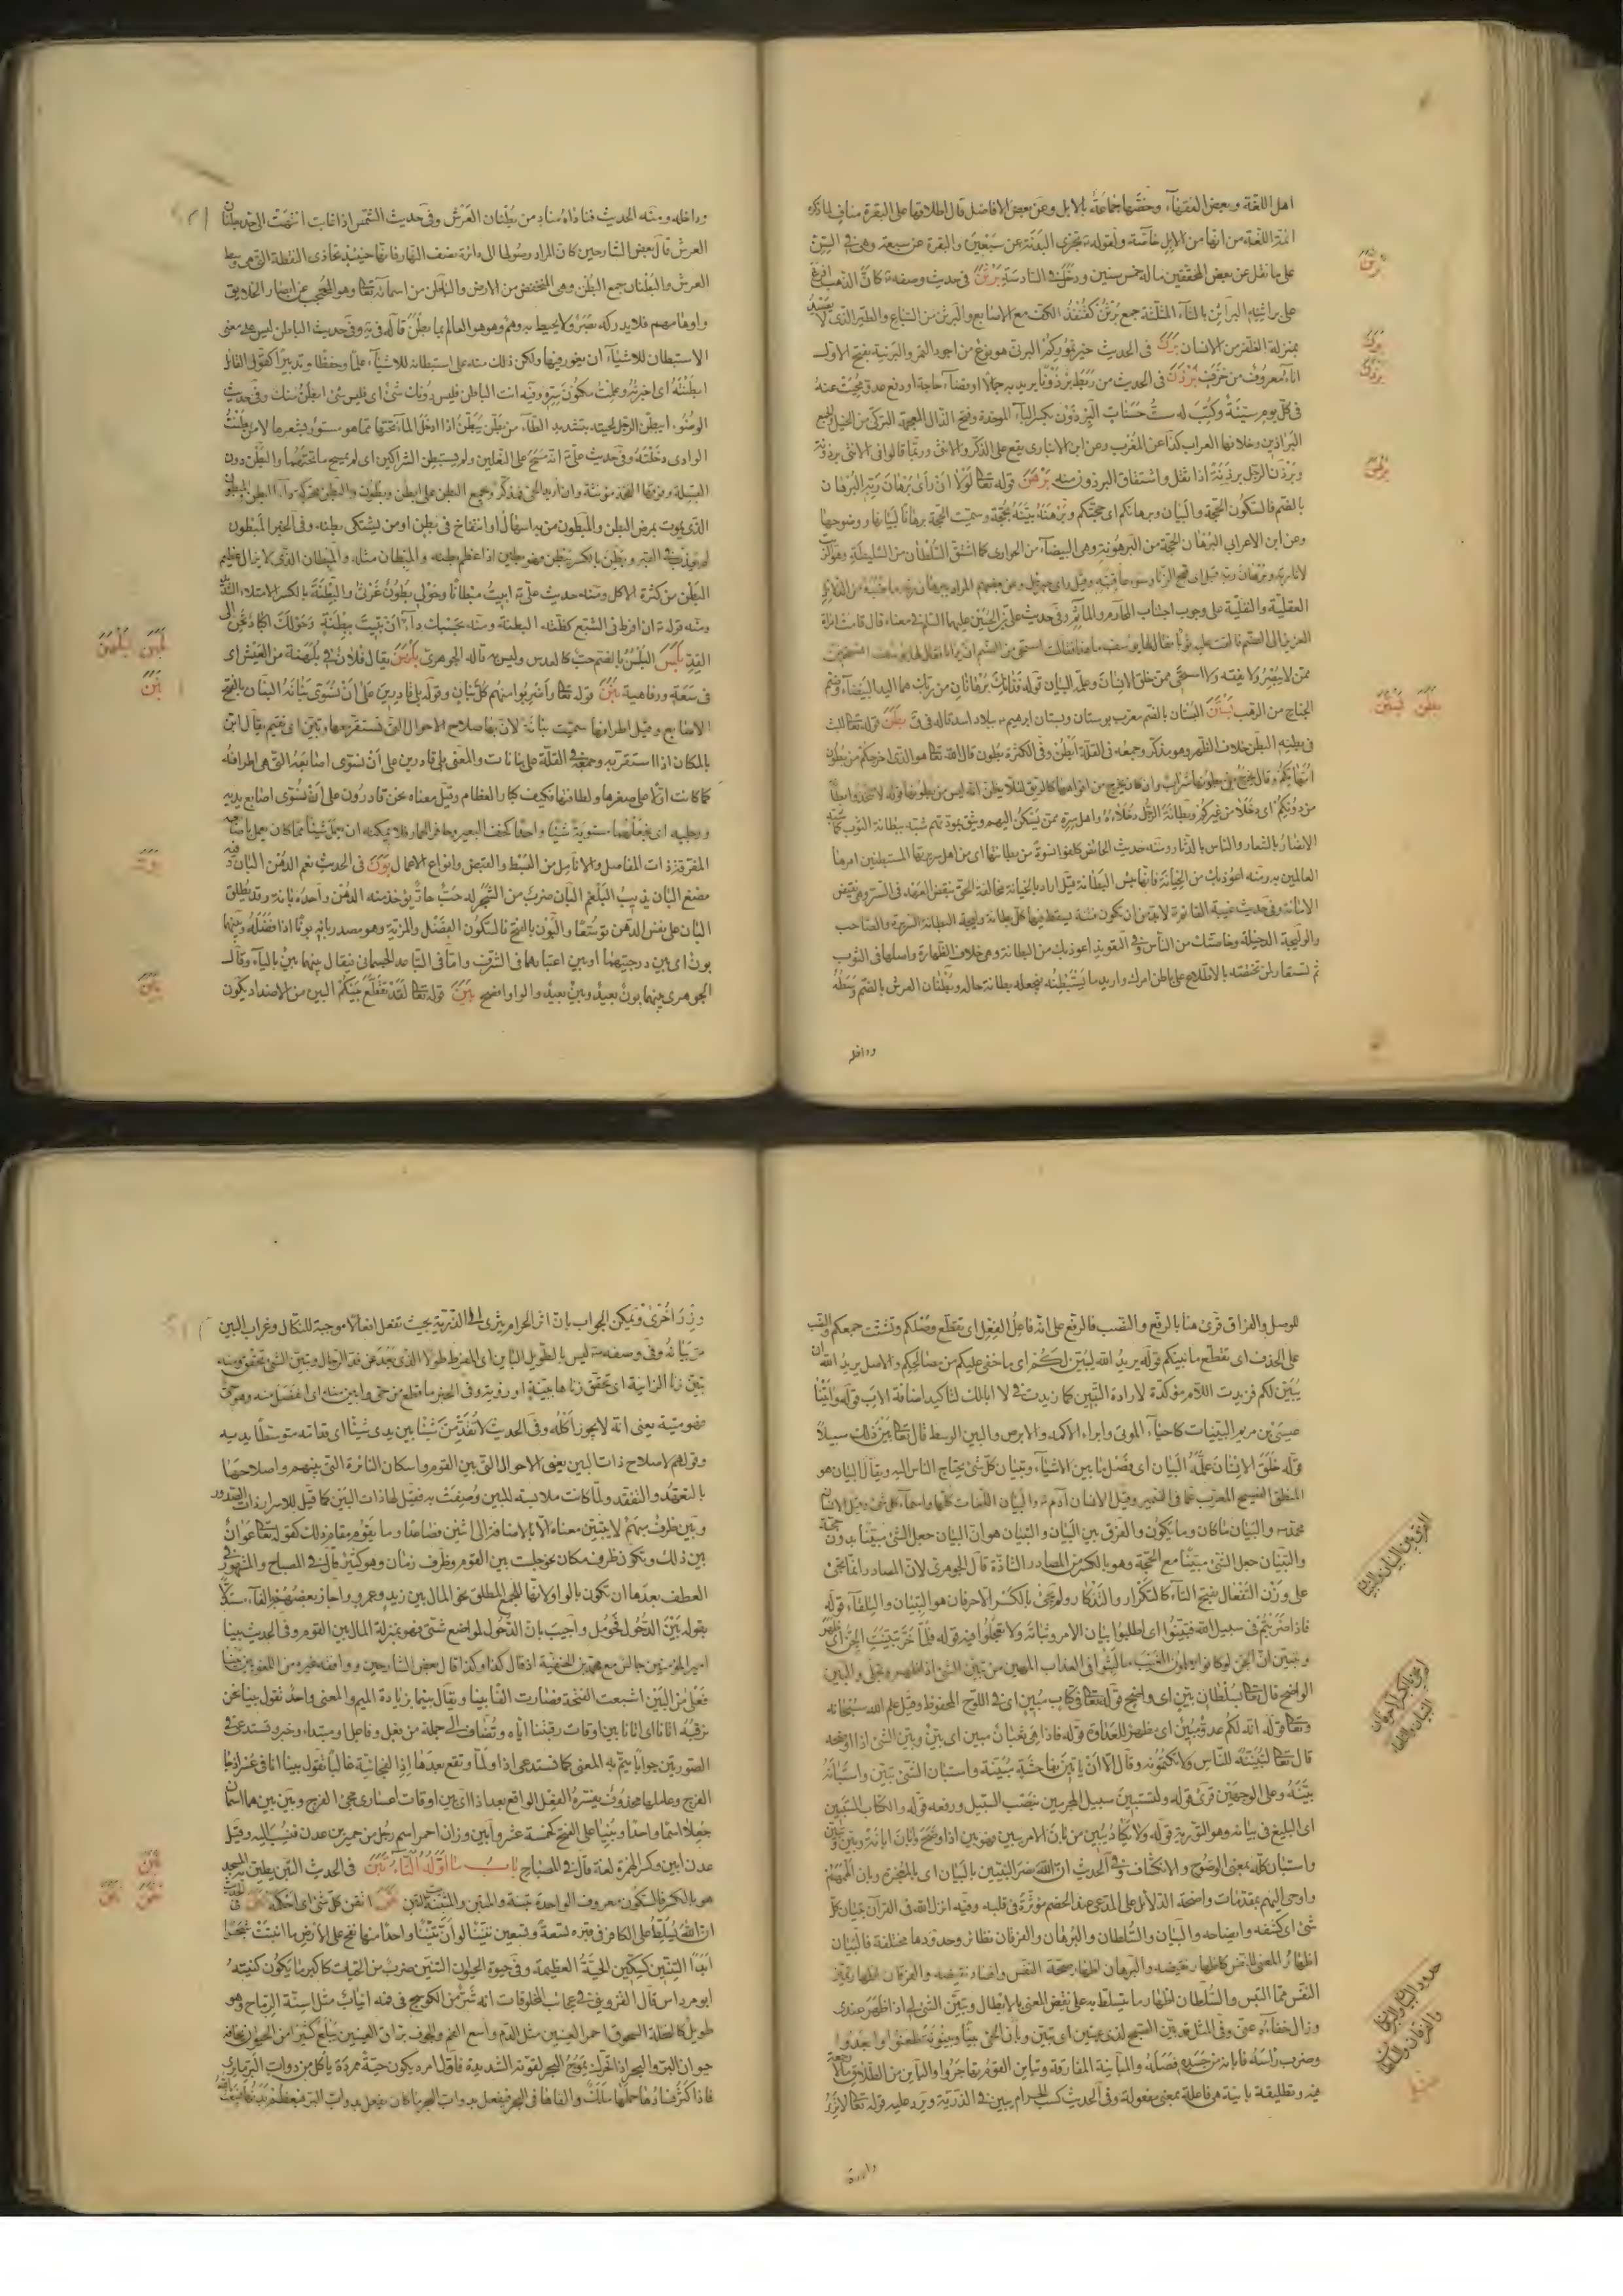 اهل اللغة وبعض الفقهاء وخصّها جماعة بالابل وعن بعض الافاضل قال اطلاقها على البقرة مناف لما ذكره
ائمة اللغة من انها من الابل خاصة ولقوله تجزي البدنة عن سبعين والبقرة عن سبعة وهي في السن
على ما نقل عن بعض المحققين ما له خمس سنين ودخل في السادسة برثن في حديث وصفه كان الذهب افرغ
على براثنه البراثن بالثاء المثلثة جمع برثن كقنفذ الكف مع الاصابع والبرثن من السباع والطير الذي لا يصيد
بمنزلة الظفر من الانسان برن في الحديث خير تموركم البرني هو نوع من اجود التمر والبرنية بفتح الاول
اناء معروف من خزف برذن في الحديث من ربط برذونا يريد به جمالا او قضاء حاجة او دفع عدو محيت عنه
في كل يوم سيئة وكتب له ست حسنات البرذون بكسر الباء الموحدة وفتح الذال المعجمة التركي من الخيل والجمع
البراذين وخلافها العراب كذا عن المغرب وعن ابن الانباري يقع على الذكر والانثى وربما قالوا في الانثى برذونة
وبرذن الرجل برذنة اذا ثقل واشتقاق البرذون منه برهن قوله تعالى لولا ان رأى برهان ربه البرهان
بالضم فالسكون الحجة والبيان وبرهانكم اى حجتكم وبرهنة بينة بحجة وسميت الحجة برهانا لبيانها ووضوحها
وعن ابن الاعرابي البرهان الحجة من البرهونة وهي البيضاء من الجوارى كما اشتق السلطان من السليطة
العقلية والنقلية على وجوب اجتناب المحارم والمآثم وفي حديث على بن الحسين عليهما السلام في معناه قال قامت امراة
العزيز الى الصنم فالقت عليه ثوبا فقال لها يوسف ما هذا فقالت استحى من الصنم ان يرانا فقال لها يوسف
ممن لا يبصر ولا يفقه ولا استحيى ممن خلق الانسان وعلمه البيان قوله فذانك برهانان من ربك هما اليد البيضاء وضم
الجناح من الرهب بستن البستان بالضم معرب بوستان وبستان ابراهيم ببلاد اسد قاله في ق بطن
في بطنه البطن خلاف الظهر وهو مذكر وجمعه في القلة ابطن وفي الكثرة بطون قال الله تعالى هو الذى اخرجكم من بطون
امهاتكم وقال يخرج من بطونها شراب
من دونكم اى دخلاء من غيركم وبطانة الرجل دخلاؤه واهل سره ممن يسكن اليهم ويثق بمودتهم شبه ببطانة الثوب كما شبه
الانصار بالشعار والناس بالدثار ومنه حديث
العالمين به ومنه اعوذ بك من الخيانة فانها بئس البطانة قيل اراد بالخيانة مخالفة الحق بنقض العهد في السر وهي نقيض
الامانة وفي حديث غيبة القائم لا بد من ان تكون فتنة يسقط فيها كل بطانة ووليجة البطانة السريرة والصاحب
والوليجة الدخيلة وخاصتك من الناس وفي التعويذ اعوذ بك من البطانة وهي خلاف الظهارة واصلها في الثوب
ثم تستعار لمن تخصه بالاطلاع على باطن امرك واريد ما يستبطنه فيجعله بطانة حاله وبطنان العرش بالضم وسطه
وداخله
برثن
برن
برذن
برهن
بستن بطن
وداخله ومنه الحديث فنادى مناد من بطنان العرش وفي حديث الشمس اذا غابت انتهت الى حد بطنان
العرش قال بعض الشارحين كان المراد وصولها الى دائرة نصف النهار فانها حينئذ تحاذى النقطة التى هى وسط
العرش والبطنان جمع البطن وهى المنخفض من الارض والباطن من اسمائه تعالى وهو المحتجب عن ابصار الخلايق
واوهامهم فلا يدركه بصر ولا يحيط به وهم وهو العالم بما بطن قاله في يه وفي حديث الباطن ليس على معنى
الاستبطان للاشياء ان يغور فيها ولكن ذلك منه على استبطانه للاشياء علما وحفظا وتدبيرا كقول القائل
ابطنته اى اخبرته وعلمت مكنون سره وفيه انت الباطن فليس دونك شئ اى فليس شئ ابطن منك وفي حديث
الوضوء ايبطن الرجل لحيته بتشديد الطاء من بطن يبطن اذا ادخل الماء تحتها مما هو مستور بشعرها لا من بطنت
الوادى دخلته وفي حديث على انه مسح على النعلين ولم يستبطن الشراكين اى لم يمسح ما تحتهما والبطن دون
الذى يموت بمرض البطن والمبطون من به اسهال او انتفاخ في بطن او من يشتكى بطنه وفي الخبر المبطون
البطن من كثرة الاكل ومنه حديث على ابيت مبطانا وحولى بطون غرثى والبطنة بالكسر الامتلاء الشديد
ومنه قوله ان افرط في الشبع كظته البطنة ومنه بحسبك داء ان تبيت ببطنة وحولك اكباد تحن الى
القد بلسن البلسن بالضم حب كالعدس وليس به قاله الجوهرى بلهن يقال فلان في بلهنية من العيش اى
في سعة ورفاهية بنن قوله تعالى واضربوا منهم كل بنان وقوله بلى قادرين على ان نسوى بنانه البنان بالفتح
الاصابع وقيل اطرافها سميت بنانة لان بها صلاح الاحوال التى تستقر بها وتبن اى تقيم يقال ابن
بالمكان اذا استقر به وجمع القلة على بنانات والمعنى بلى قادرين على ان نسوى اصابعه التى هى اطرافه
كما كانت اولا على صغرها ولطافتها فكيف كبار العظام وقيل معناه نحن قادرون على ان نسوى اصابع يديه
ورجليه اى نجعلهما مستوية شيئا واحدا كخف البعير وحافر الحمار فلا يمكنه ان يعمل شيئا مما كان يعمل باصابعه
المفرقة ذات المفاصل والانامل من البسط والقبض وانواع الاعمال بون في الحديث نعم الدهن البان وفيه
مضغ البان يذيب البلغم البان ضرب من الشجر له حب حار يؤخذ منه الدهن واحده بانة وقد يطلق
البان على نفس الدهن توسعا والبون بالفتح فالسكون الفضل والمزية وهو مصدر بانه بونا اذا فضله وبينهما
بون اى بين درجتيهما او بين اعتبارهما في الشرف واما في التباعد الجسمانى فيقال بينهما بين بالياء وقال
الجوهرى بينهما بون بعيد وبين بعيد والواو افصح بين قوله تعالى لقد تقطع بينكم البين من الاضداد يكون
بلسن بلهن
بنن
بون
بين
للوصل والفراق قرئ هنا بالرفع والنصب فالرفع على انه فاعل الفعل اى تقطع وصلكم وتشتت جمعكم والنصب
على الحذف اى تقطع ما بينكم قوله يريد الله ليبين لكم اى ما خفى عليكم من مصالحكم والاصل يريد الله ان
يبين لكم فزيدت اللام مؤكدة لارادة التبيين كما زيدت في لا ابالك لتاكيد اضافة الاب قوله واتينا
عيسى بن مريم البينات كاحياء الموتى وابراء الاكمه والابرص والبين الوسط قال تعالى بين ذلك سبيلا
قوله خلق الانسان علمه البيان اى فصل ما بين الاشياء وتبيان كل شئ يحتاج الناس اليه ويقال البيان هو
المنطق الفصيح المعرب عما في الضمير وقيل الانسان آدم والبيان اللغات كلها واسماء كل شئ وقيل الانسان
محمد والبيان ما كان وما يكون والفرق بين البيان والتبيان هو ان البيان جعل الشئ مبينا بدون حجة
والتبيان جعل الشئ مبينا مع الحجة وهو بالكسر من المصادر الشاذة قال الجوهرى لان المصادر انما تجئ
على وزن التفعال بفتح التاء كالتكرار والتذكار ولم يجئ بالكسر الا حرفان هو التبيان والتلقاء قوله
فاذا ضربتم في سبيل الله فتبينوا اى اطلبوا بيان الامر وثباته ولا تعجلوا فيه قوله فلما خر تبينت الجن اى ظهر
وتبين ان الجن لو كانوا يعلمون الغيب ما لبثوا في العذاب المهين من تبين الشئ اذا ظهر وتجلى والبين
الواضح قال تعالى بسلطان بين اى واضح قوله تعالى في كتاب مبين اى في اللوح المحفوظ وقيل علم الله سبحانه
وتعالى قوله انه لكم عدو مبين اى ظهر العداوة قوله فاذا هى ثعبان مبين اى بين وبين الشئ اذا اوضحه
قال تعالى لتبيننه للناس ولا تكتمونه وقال الا ان ياتين بفاحشة مبينة واستبان الشئ تبين واستبانه
بينه وعلى الوجهين قرئ قوله ولتستبين سبيل المجرمين بنصب السبيل ورفعه قوله والكتاب المستبين
اى البليغ في بيانه وهو التورية قوله ولا يكاد يبين من بان الامر يبين فهو بين اذا وضح وابان ابانة وبين وتبين
واستبان كله بمعنى الوضوح والانكشاف وفي الحديث ان الله نصر النبيين بالبيان اى بالمعجزة وبان الهمهم
واوحى اليهم بمقدمات واضحة الدلائل على المدعى عند الخصم مؤثرة في قلبه وفيه انزل الله في القرآن تبيان كل
شئ اى كشفه وايضاحه والبيان والسلطان والبرهان والفرقان نظائر وحدودها مختلفة فالبيان
اظهار المعنى للنفس كاظهار نقيضه والبرهان اظهار صحة النفس وافساد نقيضه والفرقان اظهار تميز
النفس مما التبس والسلطان اظهار ما يتسلط به على نقض المعنى بالابطال وتبين الشئ لى اذا ظهر عندى
وزال خفاءه عنى وفي المثل قد بين الصبح لذى عينين اى تبين وبان الحى بينا وبينونة ظعنوا وابعدوا
وضرب رأسه فابانه من جسده فصله والمباينة المفارقة وتباين القوم تهاجروا والباين من الطلاق ما لا رجعة
فيه وتطليقة باينة هى فاعلة بمعنى مفعولة وفي الحديث كسب الحرام يبين في الذرية ويرد عليه قوله تعالى لا تزر
وازرة
الفرق بين البيان والتبيان
حدود البيان والبرهان
والفرقان والسلطان
وزر اخرى ويمكن الجواب بان اثر الحرام يثرى الى الذرية بحيث تفعل افعالا موجبة للنكال وغراب البين
مر بيانه وفي وصفه ليس بالطويل الباين اى المفرط طولا الذى بعد عن قد الرجال وتبين الشئ تحقق ومنه
تبين زنا الزانية اى تحقق زناها ببينة او رؤية وفي الخبر ما قطع من حى وابين منه اى انفصل منه وهو حى
فهو ميتة يعنى انه لا يجوز اكله وفي الحديث لا تقدمن شيئا بين يدى شئ
وقولهم اصلاح ذات البين يعنى الاحوال التى بين القوم واسكان الثائرة التى بينهم واصلاحها
بالتعهد والتفقد ولما كانت ملابسة للبين وصفت به فقيل لها ذات البين كما قيل للاسرار ذات الصدور
وبين ظرف مبهم لا يتبين معناه الا بالاضافة الى اثنين فصاعدا وما يقوم مقام ذلك كقوله تعالى عوان
بين ذلك وتكون ظرف مكان نحو جلست بين القوم وظرف زمان وهو كثير قال في المصباح والمشهور في
العطف بعدها ان تكون بالواو لانها للجمع المطلق نحو المال بين زيد وعمرو واجاز بعضهم الفاء مستدلا
بقوله بين الدخول فحومل واجيب بان الدخول لمواضع شتى فهو بمنزلة المال بين القوم وفي الحديث بينا
امير المؤمنين جالس مع محمد بن الحنفية اذ قال كذا وكذا قال بعض الشارحين ووافقه غيره من اللغويين بينا
فعلى من البين اشبعت الفتحة فصارت الفا بينا ويقال بينما بزيادة الميم والمعنى واحد تقول بينا نحن
نرقبه اتانا اى اتانا بين اوقات رقبتنا اياه وتضاف الى جملة من فعل وفاعل او مبتداء وخبر وتستدعى في
الصورتين جوابا يتم به المعنى كما تستدعى اذا ولما وتقع بعدها اذ الفجائية غالبا تقول بينا انا في عسر اذ جاء
الفرج وعاملها محذوف يفسره الفعل الواقع بعد اذ اى بين اوقات اعسارى مجئ الفرج وبين بين هما اسمان
جعلا اسما واحدا وبنيا على الفتح كخمسة عشر وابين وزان احمر اسم رجل من حمير بن عدن فنسب اليه وقيل
عدن ابين وكسر الهمزة لغة قال في المصباح باب ما اوله التاء تبن في الحديث التبن يطين به المسجد
هو بالكسر فالسكون معروف الواحدة تبنة والمتبن والمتبنة بيت التبن تقن اتقن كل شئ اى احكمه تنن في الحديث
ان الله يسلط على الكافر في قبره تسعة وتسعين تنينا لو ان تنينا واحدا منها نفخ على الارض ما انبتت شجرا
ابدا التنين كسكين الحية العظيمة وفي حيوة الحيوان التنين ضرب من الحيات كاكبر ما يكون كنيته
ابو مرداس قال القزوينى في عجائب المخلوقات انه شر من الكوسج في فمه انياب مثل اسنة الرماح وهو
طويل كالنخلة السحوق احمر العينين مثل الدم واسع الفم والجوف براق العينين يبلع كثيرا من الحيوان يخافه
حيوان البر والبحر اذا تحرك يموج البحر لقوته الشديدة فاول امره يكون حية متمردة ياكل من دواب البر ما يرى
فاذا كثر فسادها حملها ملك والقاها في البحر فتفعل بدواب البحر ما كان تفعل بدواب البر فيعظم بدنها
تبن
تقن تنن